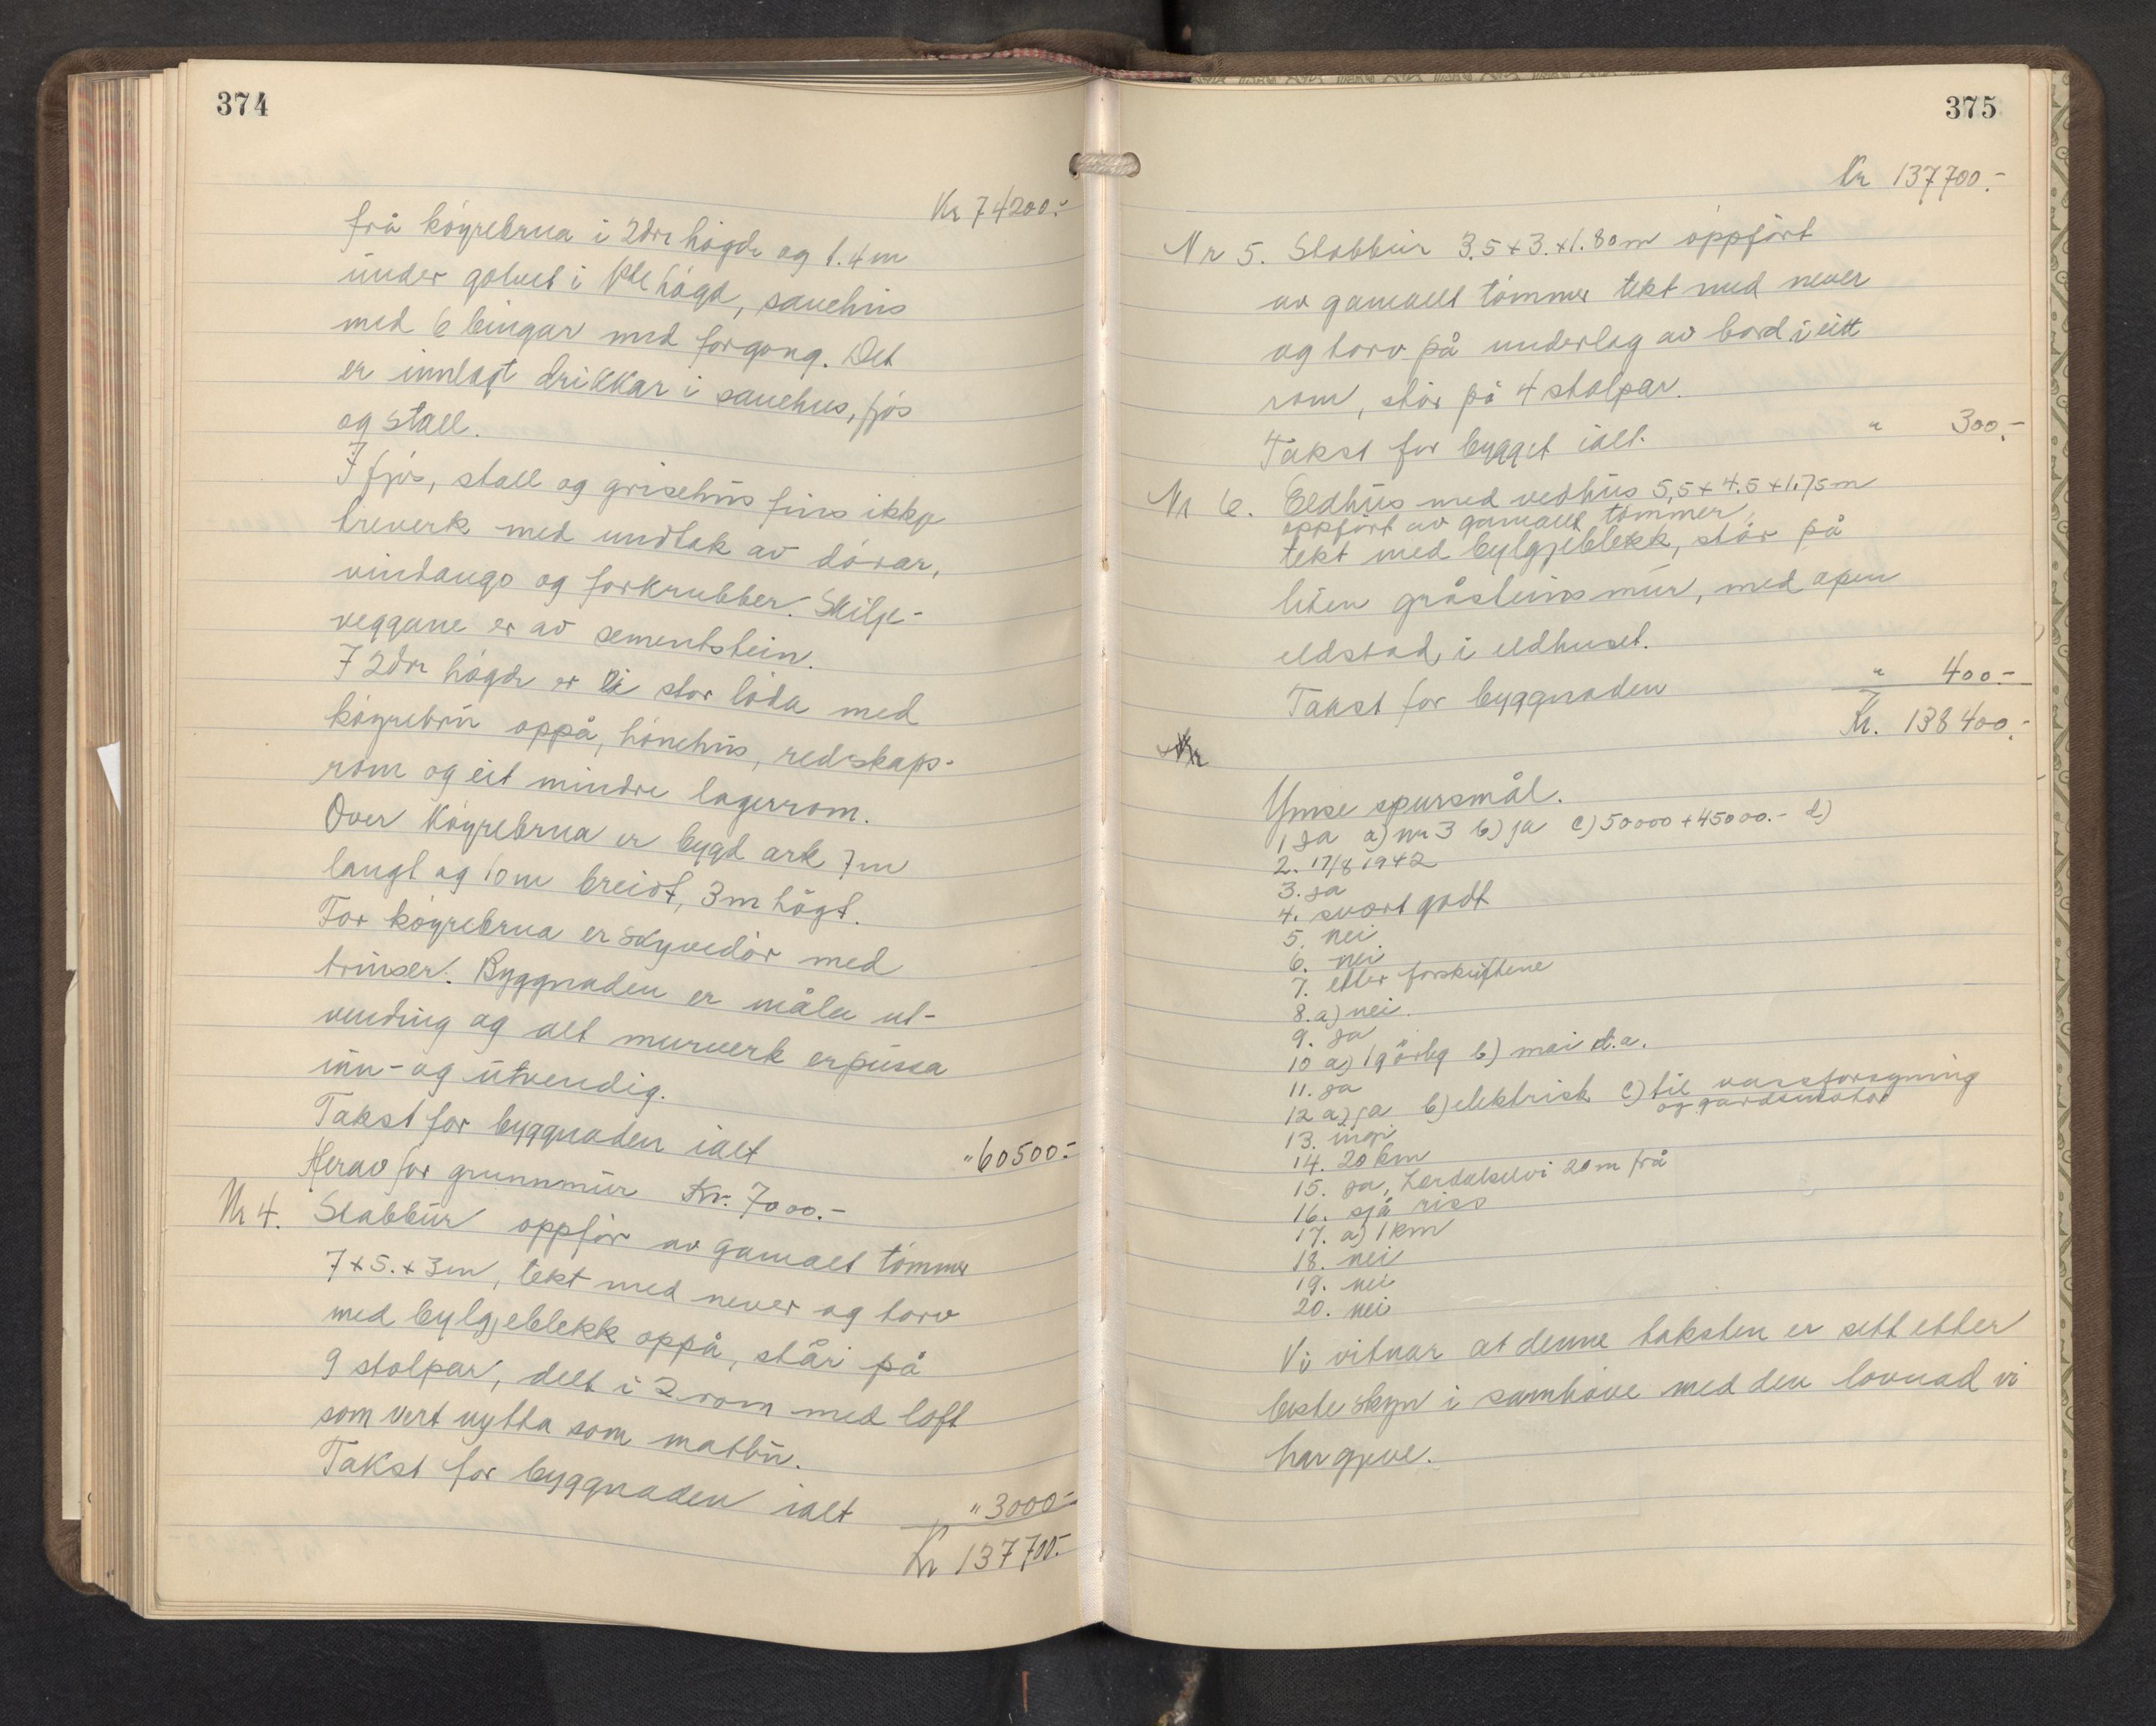 374
Kr 74200.-
frå køyrebrua i 2dre høgda og 1.4m
under golvet i 1ste høgd, sauehus
med 6 bingar med forgong. Det
er innlagt drikkar i sauehus, fjøs
og stall.
I fjøs, stall og grisehus fins ikkje
treverk med undtak av dørar,
vindaugo og forkrubber. Skilje-
veggane er av sementstein.
I 2dre høgda er ei stor løda med
køyrebru oppå, hønehus, redskaps-
rom og eit mindre lagerrom.
Over køyrebrua er bygd ark 7m
langt og 10m breidt, 3m høgt.
For køyrebrua er skyvedør med
trinser. Byggnaden er måla ut-
vendig og alt murverk er pussa
inn- og utvendig.
Takst for byggnaden ialt
" 60500.-
Herav for grunnmur Kr. 7000.-
Nr 4. Stabbur oppfør av gamalt tømmer
7 x 5. x 3m, tekt med never og torv
med bylgjeblekk oppå, står på
9 stolpar, delt i 2 rom med loft
som vert nytta som matbu.
Takst for byggnaden ialt
" 3000.-
Kr 137700.-
375
Kr 137700.-
Nr 5. Stabbur 3.5 x 3. x 1.80m oppført
av gamalt tømmer tekt med never
og torv på underlag av bord i eitt
rom, står på 4 stolpar.
Takst for bygget ialt. " 300.-
Nr 6. Eldhus med vedhus 5,5 x 4.5 x 1.75m
oppført av gamalt tømmer,
tekt med bylgjeblekk, står på
liten gråsteinsmur, med open
eldstad i eldhuset.
Takst for byggnaden " 400.-
Kr. 138400.-
Ymse spursmål.
1 ja a) nr 3 b) ja c) 50000 + 45000.- d)
2. 17/8 1942
3. ja
4. svært godt
5. nei
6. nei
7. etter forskriftene
8. a) nei.
9. ja
10 a) 1 görleg b) mai d.a.
11. ja
12 a) ja b) elektrisk c) til vassforsyning
og gardsmotor
13. ingi
14. 20 km
15. ja, Lærdalselvi 20m frå
16. sjå riss
17. a) 1 km
18. nei
19. nei
20. nei
Vi vitnar at denne taksten er sett etter
beste skyn i samhøve med den lovnad vi
har gjeve.